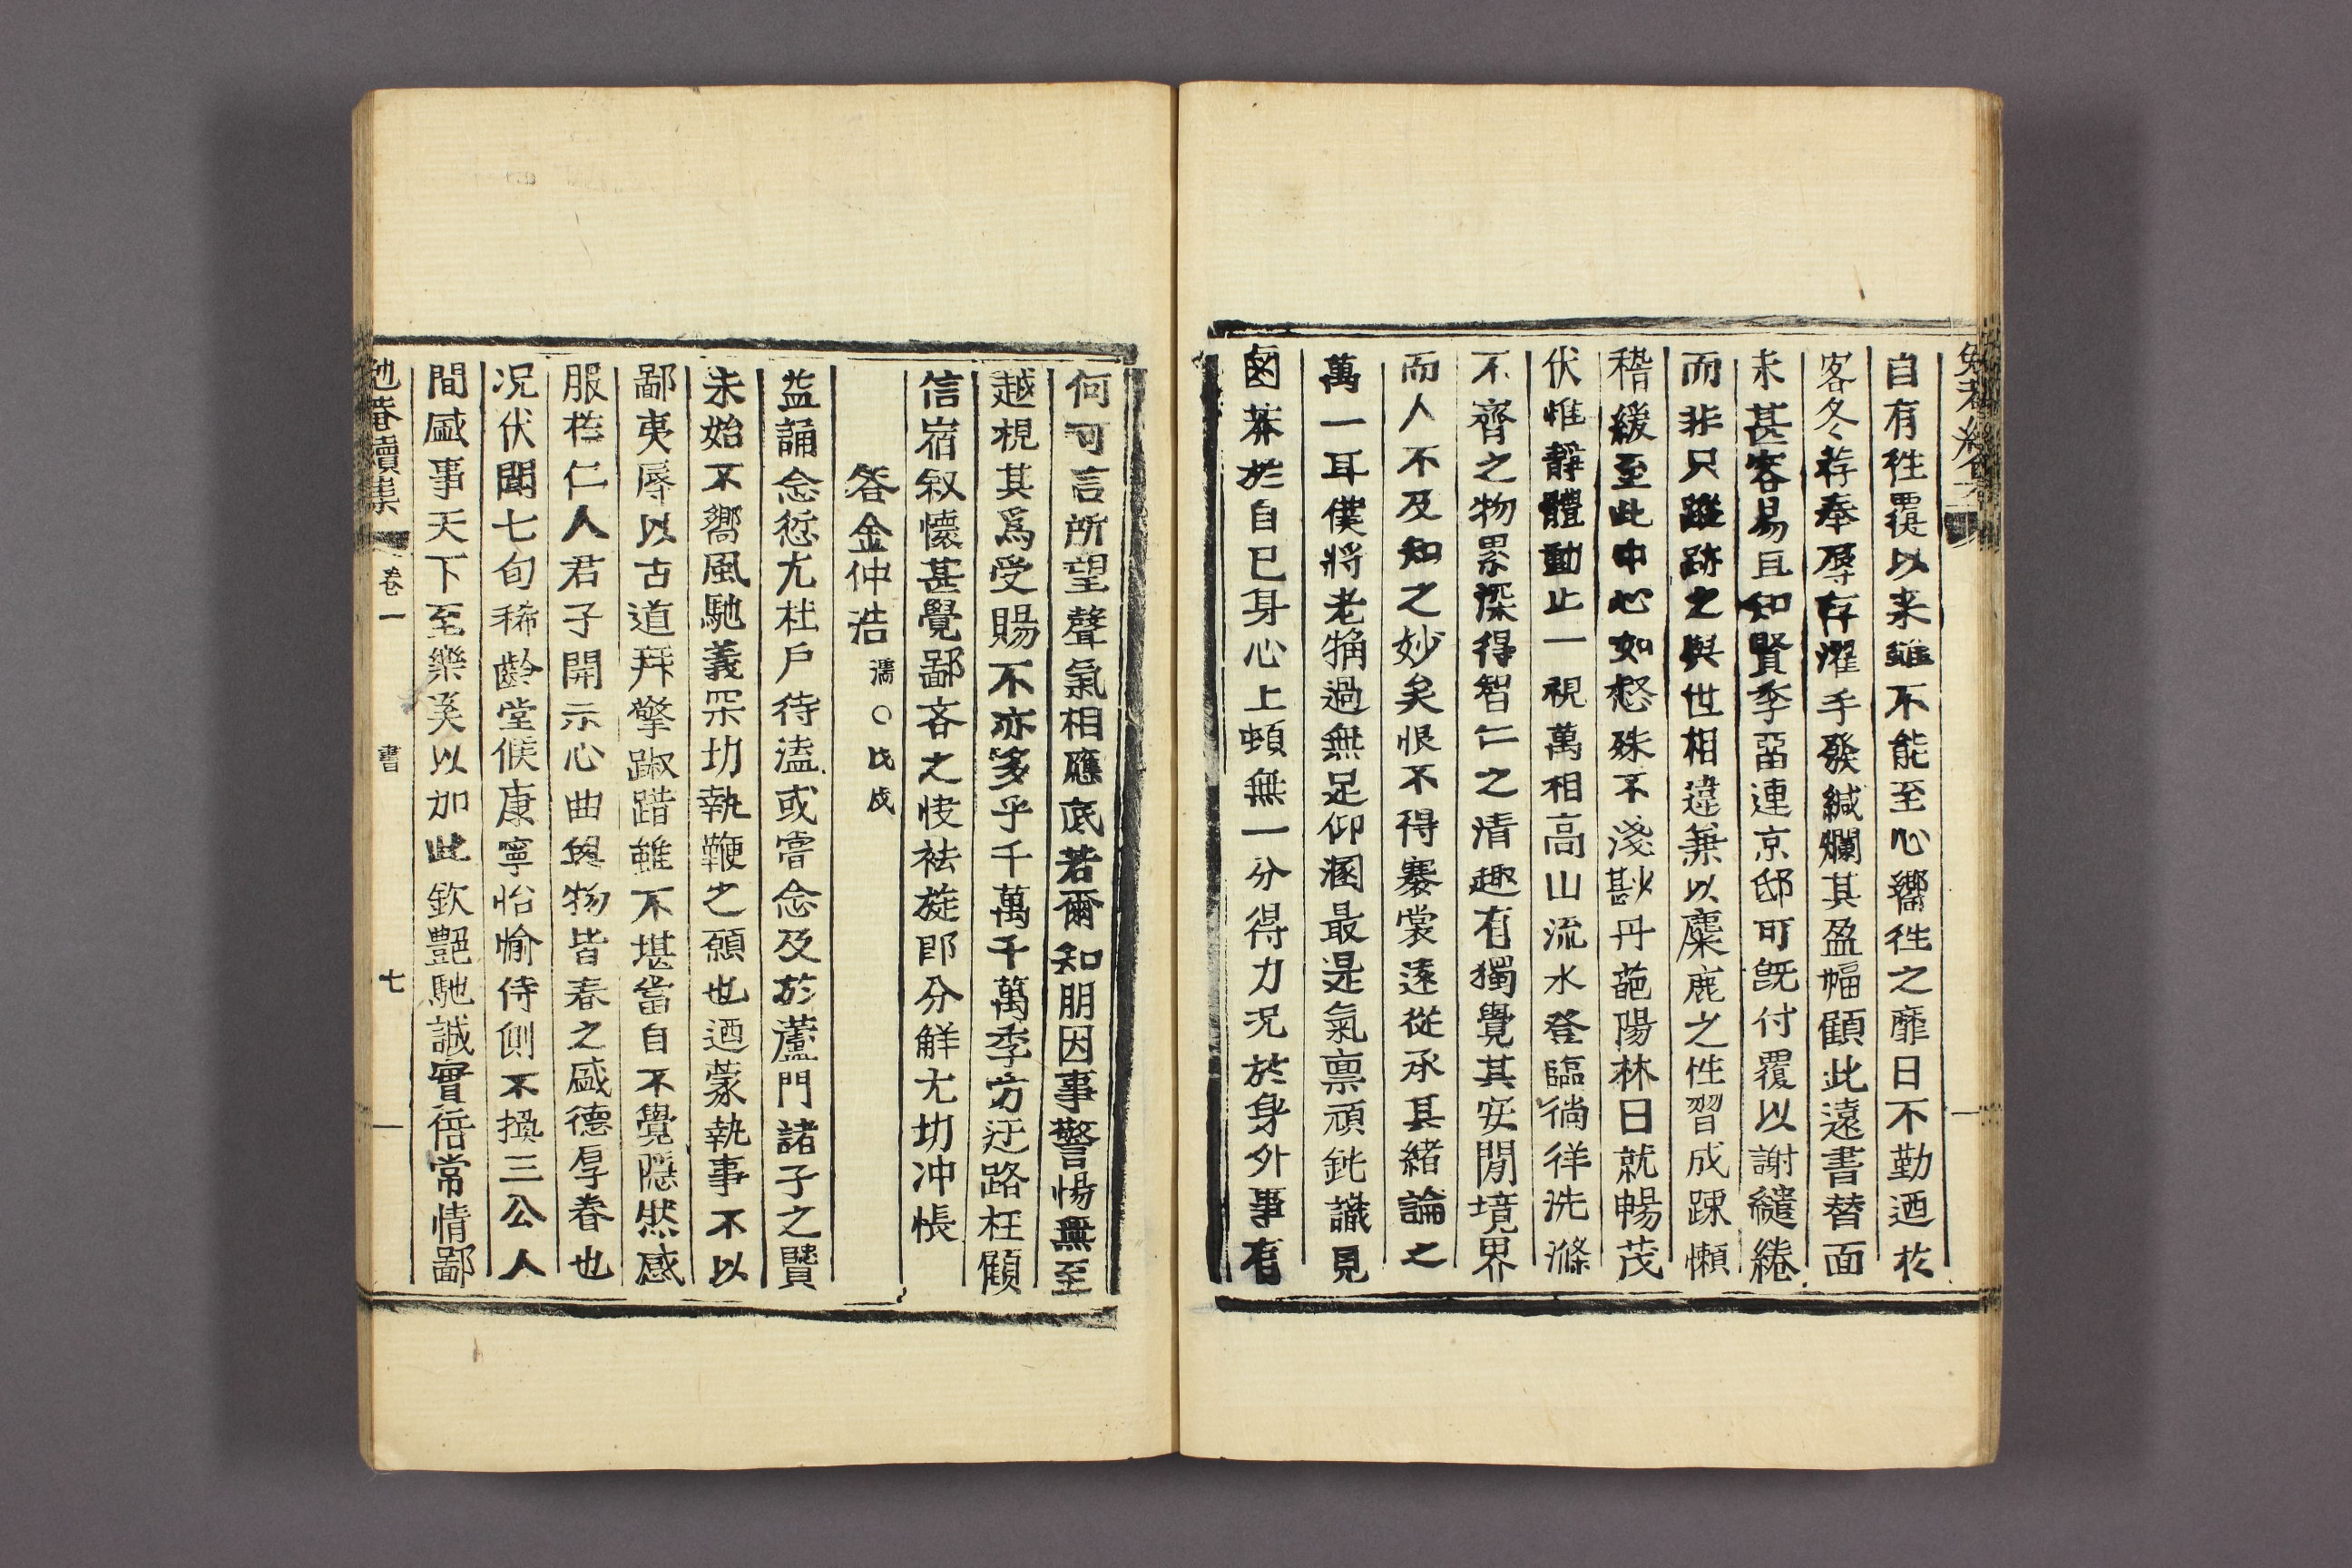 自有徃覆以来雖不能至心嚮徃之靡日不勤迺於
客冬荐奉辱存濯手發緘爛其盈幅顧此遠書替面
未甚容易且知賢季畱連京邸可旣付覆以謝繾綣
而非只蹤跡之與世相違兼以麋鹿之性習成踈懶
稽緩至此中心如怒殊不淺尠丹葩陽林日就暢茂
伏惟靜體動止一視萬相高山流水登臨徜徉洗滌
不齊之物累深得智仁之清趣有獨覺其安閒境界
而人不及知之妙矣恨不得褰裳遠從承其緒論之
萬一耳僕將老犕過無足仰溷最是氣禀頑鈍識見
鹵莽於自已身心上頓無一分得力况於身外事有
何可言所望聲氣相應底若爾知朋因事警惕無至
越梘其爲受賜不亦多乎千萬千萬季方迂路枉顧
信宿叙懷甚覺鄙吝之㤺袪旋卽分觧尤切冲悵
答金仲浩 濡○戊戌
益誦念愆尤杜戶待溘或嘗念及於蘆門諸子之贒
未始不嚮風馳義罙切執鞭之願也迺蒙執事不以
鄙夷辱以古道拜擎踧踖雖不堪當自不覺隱然感
服徃仁人君子開示心曲與物皆春之盛德厚眷也
况伏聞七旬稀齡堂候康寧怡愉侍側不換三公人
間盛事天下至樂奚以加此欽艶馳誠實倍常情鄙
勉菴續集 卷一 書 七